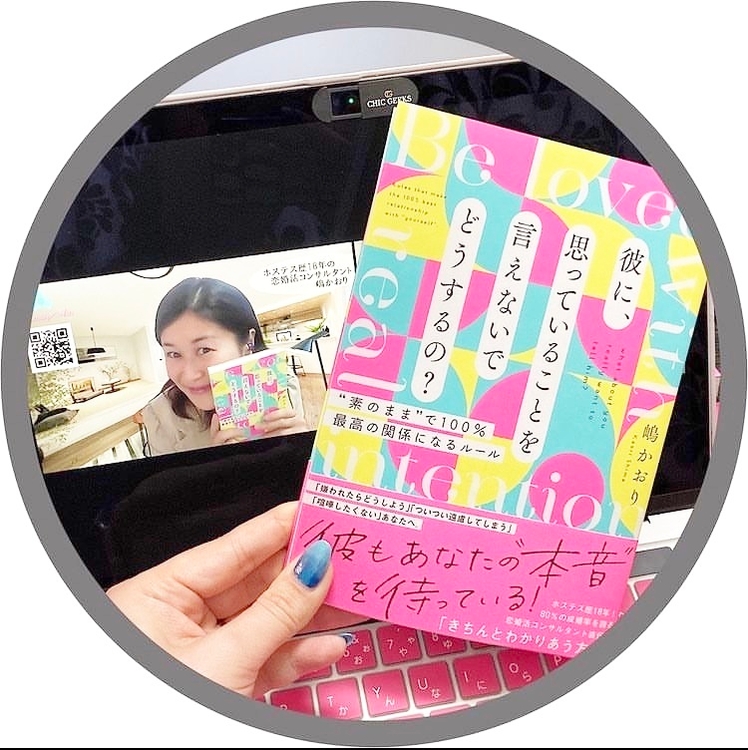 CHIC GEEKS
ホステス歴18年の
恋婚活コンサルタント
嶋かおり
Be loved
with
real
intention
彼に、
思っていることを
言えないで
どうするの?
"素のまま"で100%
最高の関係になるルール
嶋かおり
Kaori Shima
「嫌われたらどうしよう」「ついつい遠慮してしまう」
「喧嘩したくない」あなたへ
彼もあなたの"本音"
を待っている!
ホステス歴18年
80%の成婚率を誇る
恋婚活コンサルタント
「きちんとわかりあう方